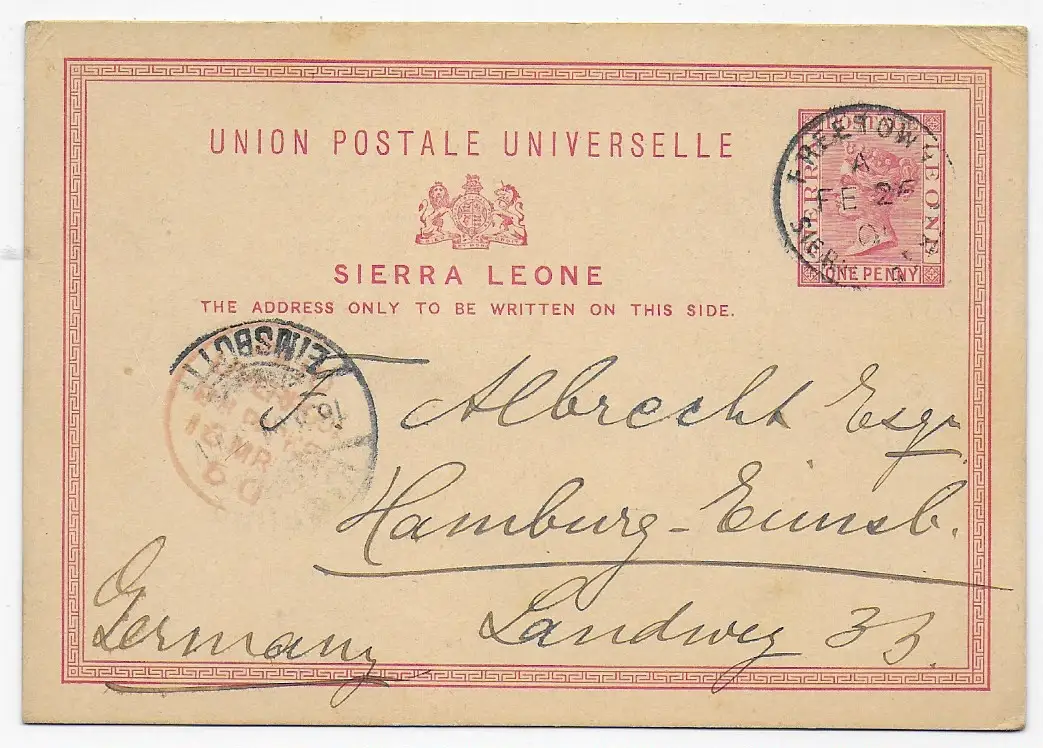 UNION POSTALE UNIVERSELLE
SIERRA LEONE
THE ADDRESS ONLY TO BE WRITTEN ON THIS SIDE.
LEONE
ONE PENNY
FREETOW
A
FE 2
SIER
EIMSBÜTT
16 MR
00
J. Albrecht Esqr
Hamburg-Eimsb.
Landweg 33.
Germany